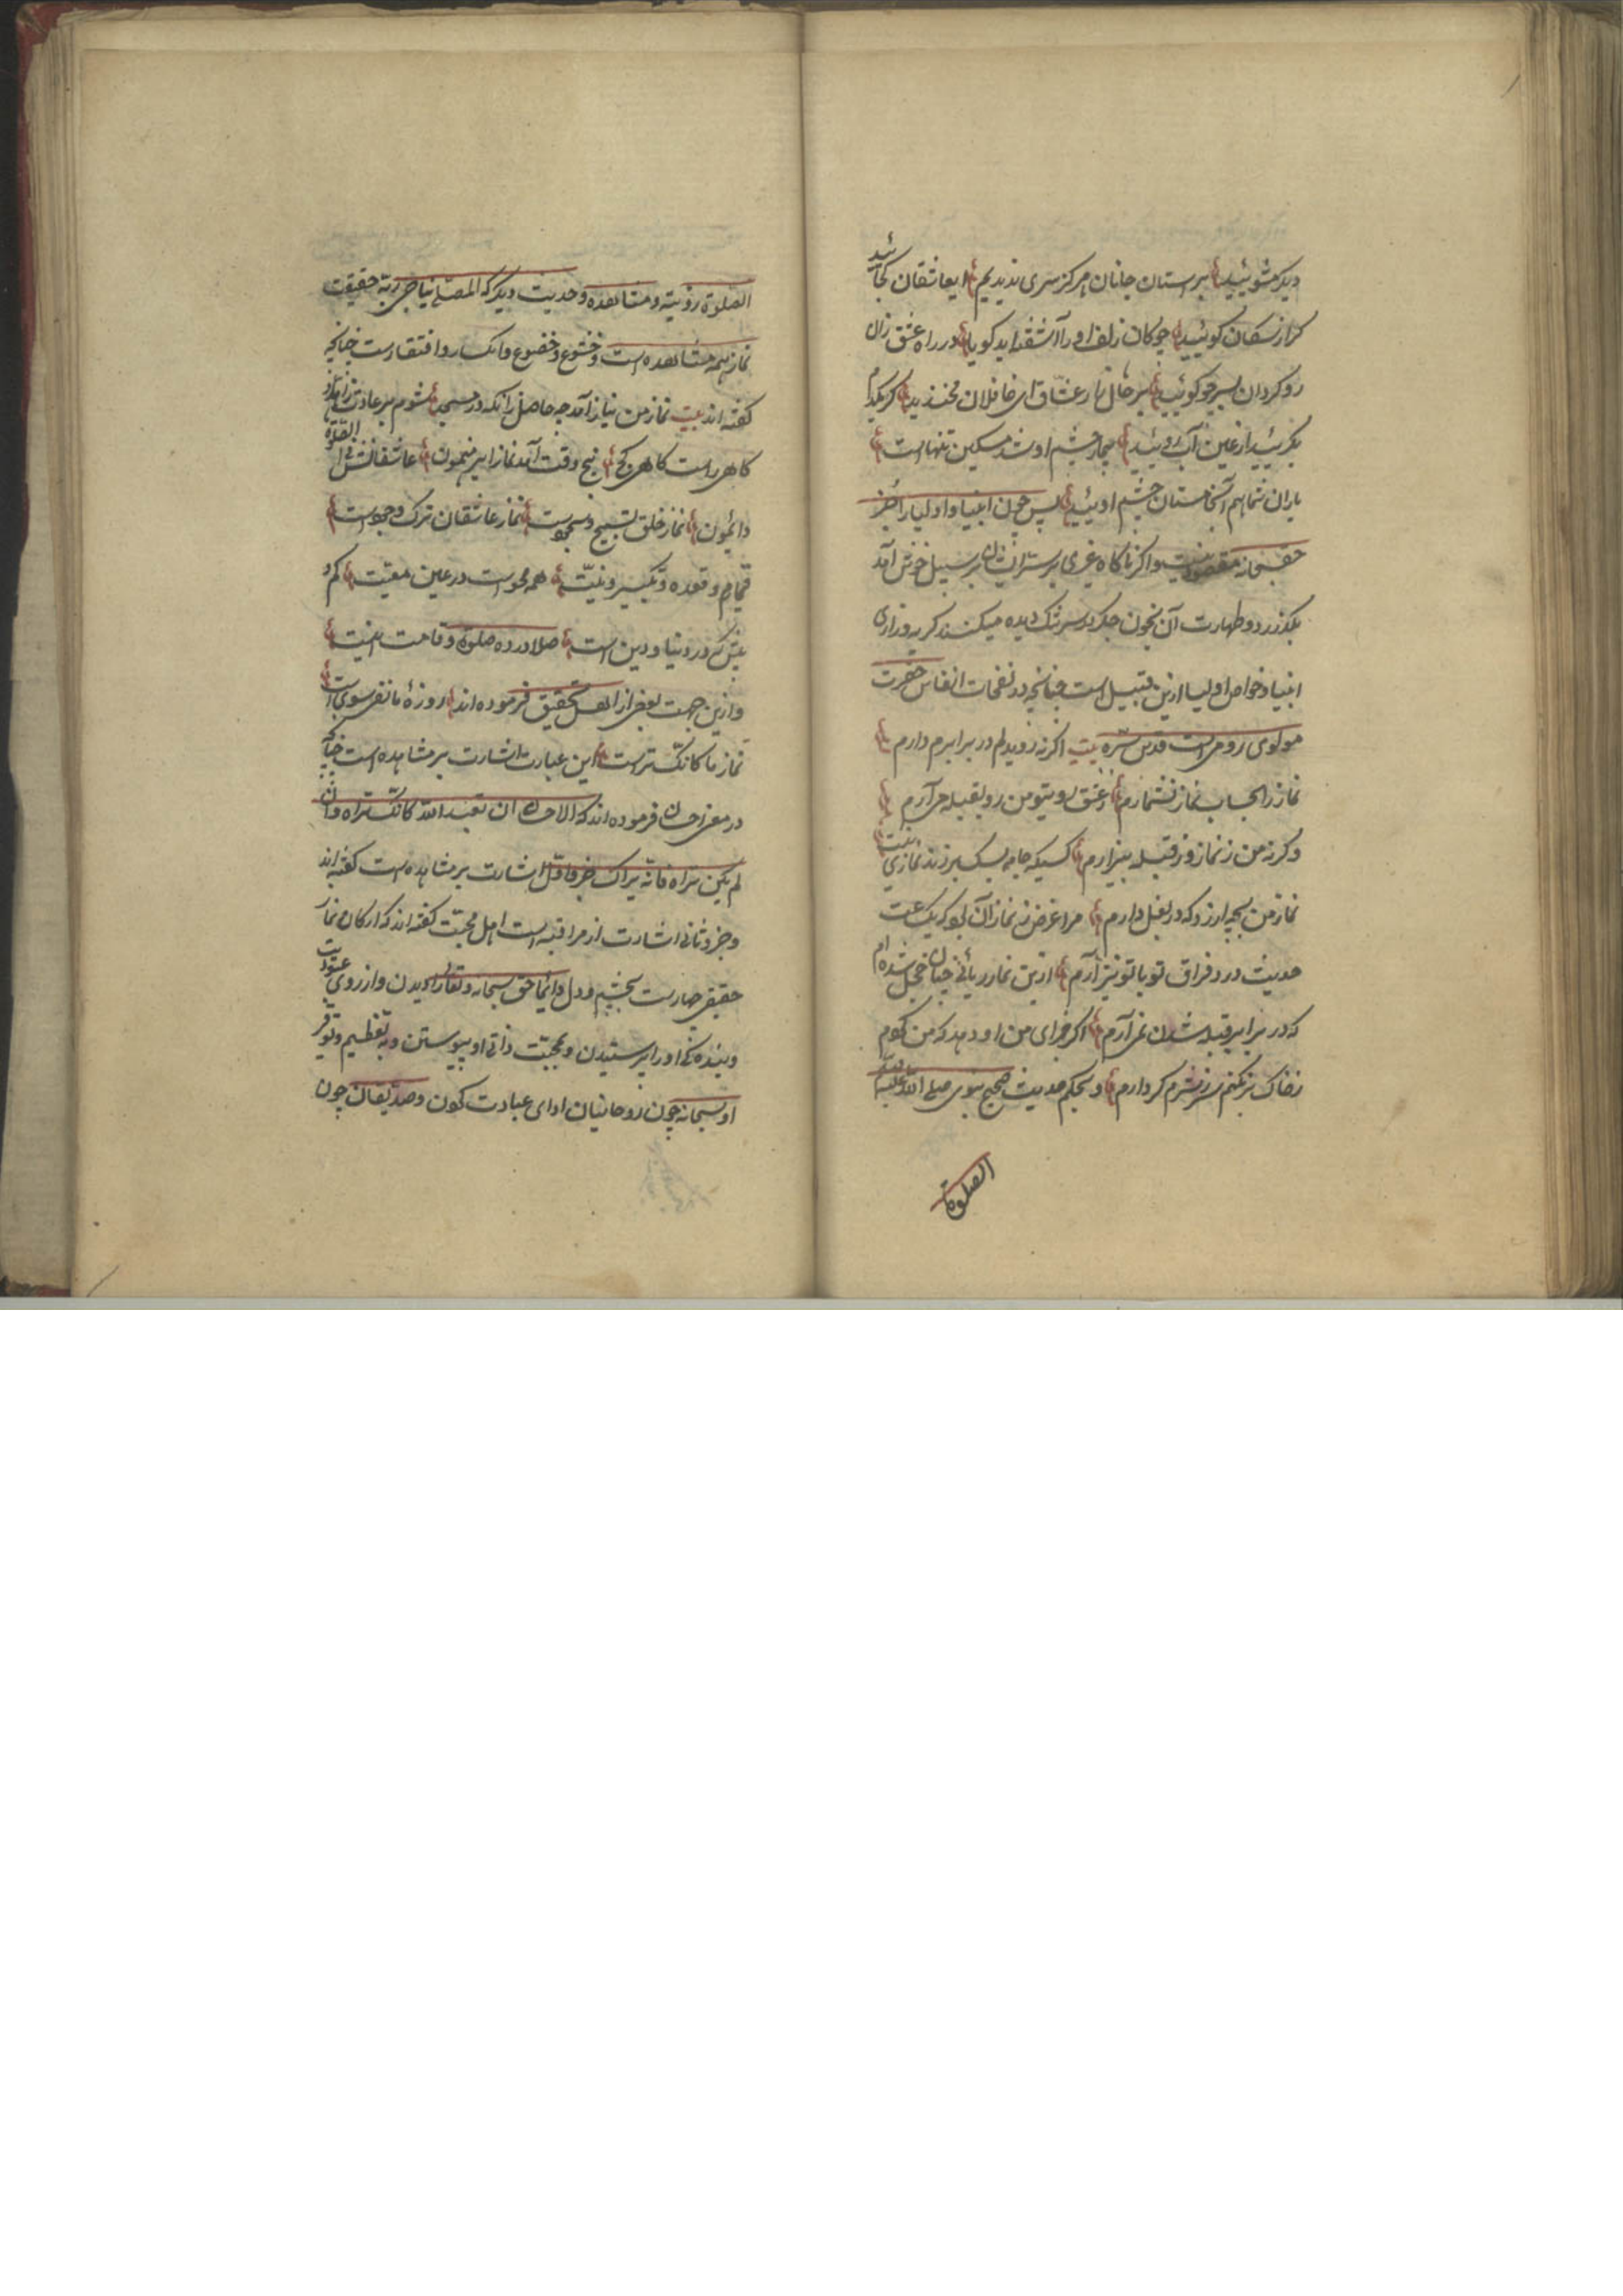 دیگر مشوئید بر استان جانان هرکز سری ندیدیم ایعاشقان کجائید
کر ازسکان کوئید چوکان زلف او را آشفته اید کویا در راه عشق زان
رو کردان بسر چو کوئید بر حال زار عشاق ای غافلان مخندید کر یکدم
بکریید از عین آب روئید بیمار چشم او شد مسکین تنهاست
یاران شما هم آخر مستان چشم اوئید پس چون انبیا و اولیا را جز
حقسبحانه مقصود نیست و اکر ناکاه غیری بر سرایشان بر سبیل خوش آمد
بکذرد و طهارت آن بخون جکر و سرشک دیده میکنند کریه و زاری
انبیا و خواص اولیا ازین قبیل است چنانچه در نفحات انفاس حضرت
مولوی رومی است قدس سره بیت اکر نه روی دلم در برابرم دارم
نماز را بحساب نماز نشمارم ز عشق روی تو من رو بقبله می آرم
وکرنه من ز نماز و ز قبله بیزارم کسیکه جامه بسک بر زند نمازی نیست
نماز من بچه ارزد که در بغل دارم مرا غرض ز نماز آن بود که یک ساعت
حدیث درد فراق تو با تو بنزارم ازین نماز ریائی چنان خجل شده ام
که در برابر قبله شدن نمی آرم اکر جزای من او دهد که من کویم
ز خاک بر نکنم سر ز شرم کردارم و بحکم حدیث صحیح نبوی صلی الله علیه وسلم
الصلوة
الصلوة رؤیته ومشاهده وحدیث دیکر که المصلی یناجی ربه حقیقت
نماز همه مشاهده است و خشوع و خضوع و انکسار و افتقارست چنانچه
کفته اند بیت نماز من نیاز آمد چه حاصل زانکه در مسجد شوم بر عادت زاهد
کاهی راست کاهی کج پنج وقت آمد نماز ای رهنمون عاشقانش فی الصلوة
دائمون نماز خلق تسبیح و سجودست نماز عاشقان ترک وجودست
قیام و قعده و تکبیر و نیت همه محوست در عین معیت
که در دنیا و دین است صلا در ده صلوة و قامت اینست
وازین جهت بعضی از اهل تحقیق فرموده اند روزهٔ ما نفی سوی است
نماز ما کانک تراست این عبارت اشارت بر مشاهده است چنانکه
در معنی احسان فرموده اند که الاحسان ان تعبد الله کانک تراه وان
لم یکن تراه فانه یراک جزو اول اشارت بر مشاهده است کفته اند
وجزو ثانی اشارت از مراقبه است اهل محبت کفته اند که ارکان نماز
حقیقی چهارست بچشم و دل دائما حق سبحانه وتعالی را دیدن و از روی عبودیت
وبنده کی او را پرستیدن وبمحبت ذاتی او پیوستن وبه تعظیم و توقیر
او سبحانه چون روحانیان ادای عبادت کردن وصدیقان چون